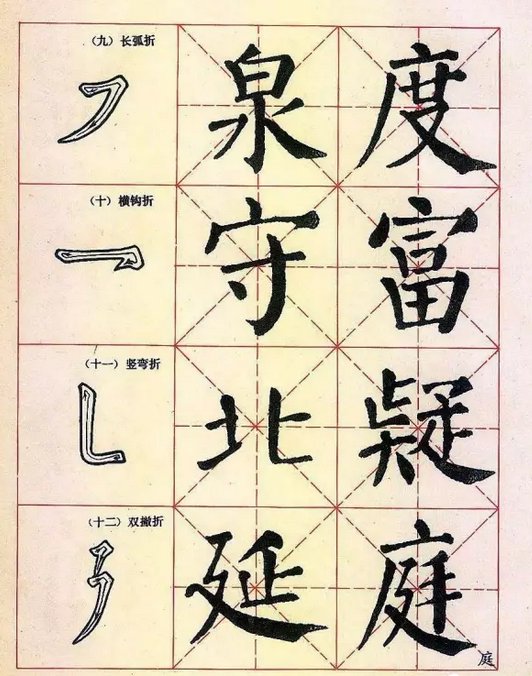 （九）长弧折
泉 度
（十）横钩折
守 富
（十一）竖弯折
北 疑
（十二）双撇折
延 庭
庭